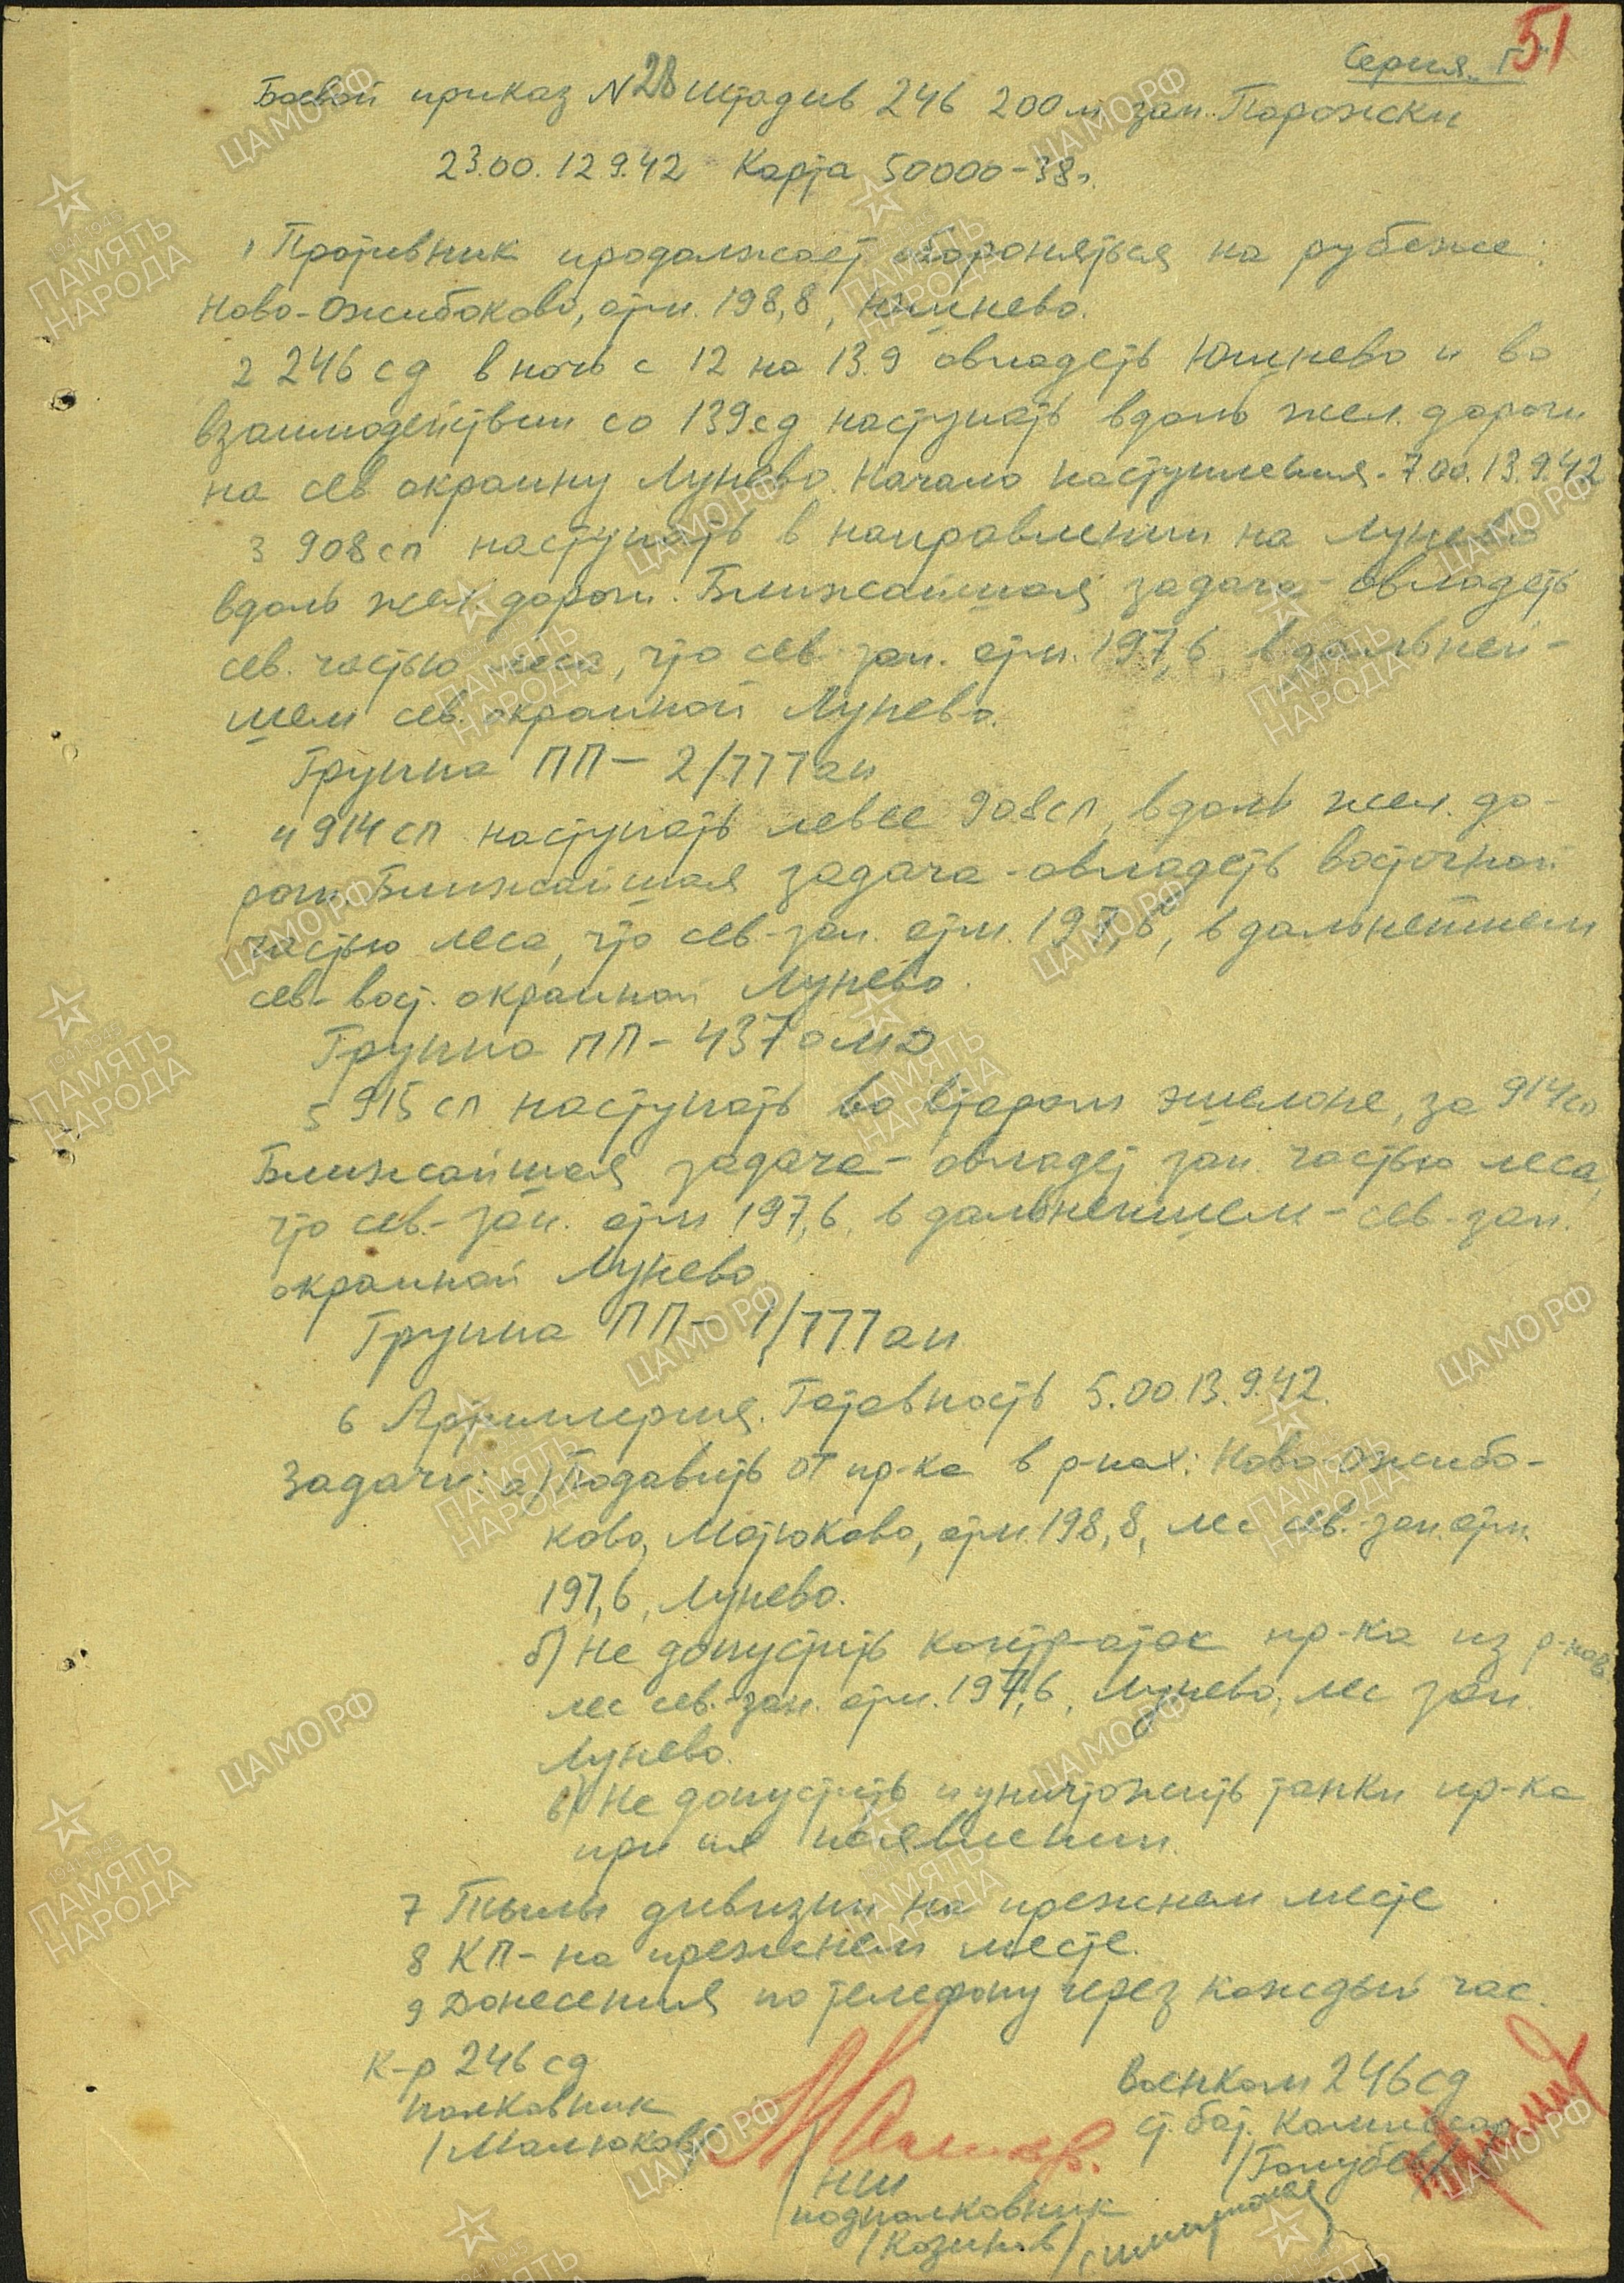 51
Серия "Г"
Боевой приказ N28 штадив 246 200 м зап. Порожски
23.00. 12 9.42 Карта 50000-38г.
1 Противник продолжает обороняться на рубеже:
Ново-Ожибоково, отм. 198,8, Юшнево.
2 246 сд в ночь с 12 на 13.9 овладеть Юшнево и во
взаимодействии со 139 сд наступать вдоль жел. дороги
на сев окраину Лунево. Начало наступления - 7.00. 13.9.42
3 908 сп наступать в направлении на Лунево
вдоль жел. дороги. Ближайшая задача - овладеть
сев. частью леса, что сев. зап. отм. 197,6, в дальней-
шем сев. окраиной Лунево.
Группа ПП - 2/777 ап
4 914 сп наступать левее 908 сп, вдоль жел. до-
роги. Ближайшая задача - овладеть восточной
частью леса, что сев.-зап. отм. 197,6, в дальнейшем
сев-вост. окраиной Лунево.
Группа ПП - 437 омд
5 915 сп наступать во втором эшелоне, за 914 сп
Ближайшая задача - овладеть зап. частью леса,
что сев.-зап. отм 197,6, в дальнейшем - сев-зап.
окраиной Лунево
Группа ПП - 1/777 ап
6 Артиллерия. Готовность 5.00 13.9.42.
Задачи: а) Подавить ОТ пр-ка в р-нах: Ново Ожибо-
ково, Матюково, отм. 198,8, лес сев.-зап. отм.
197,6, Лунево.
б) Не допустить контр-атак пр-ка из р-нов
лес сев.-зап. отм. 197,6, Лунево, лес зап.
Лунево.
в) Не допустить и уничтожить танки пр-ка
при их появлении.
7 Тылы дивизии на прежнем месте
8 КП - на прежнем месте.
9 Донесения по телефону через каждый час.
К-р 246 сд
полковник
/Малюков/
Военком 246 сд
ст. бат. комиссар
/Голубев/
НШ
подполковник
/Козинов/
ЦАМО.РФ
ПАМЯТЬ
НАРОДА